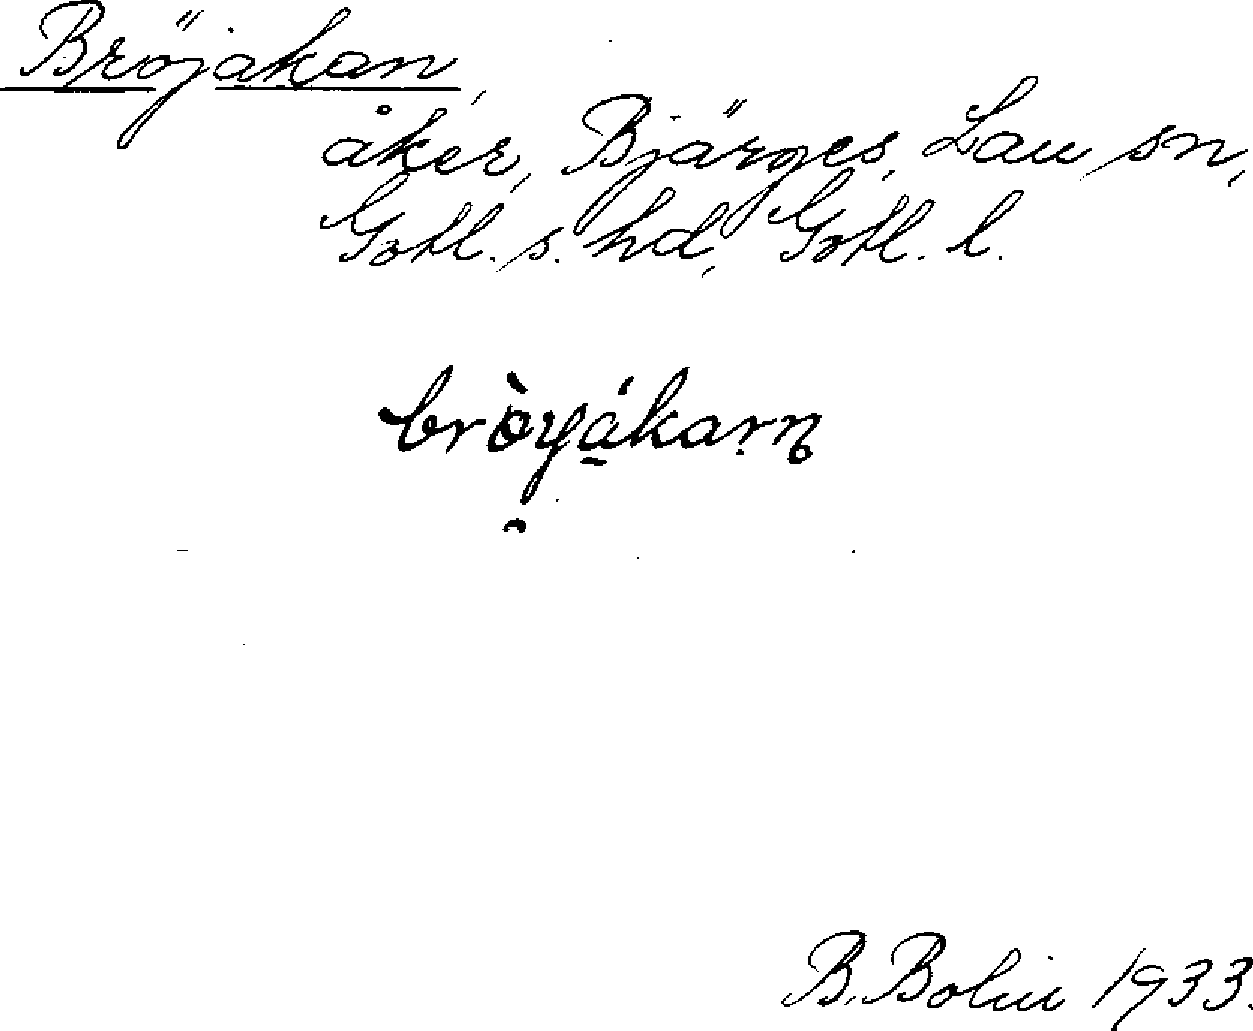 Bröjakan,
åker, Bjärges, Lau sn,
Gotl. s. hd, Gotl. l.
brȯ̀yákarn
B. Bolin 1933.